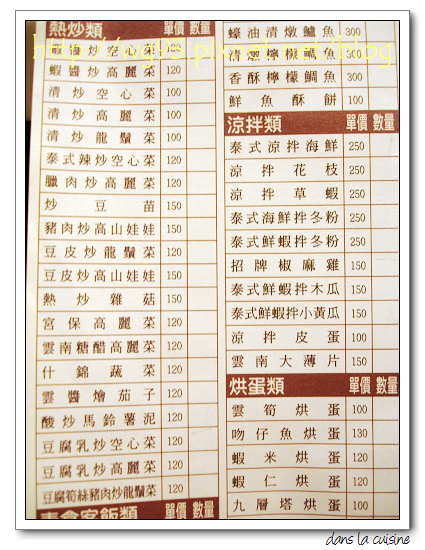 熱炒類 單價 數量
蝦醬炒空心菜 120
蝦醬炒高麗菜 120
清炒空心菜 100
清炒高麗菜 100
清炒龍鬚菜 100
泰式辣炒空心菜 120
臘肉炒高麗菜 120
炒豆苗 150
豬肉炒高山娃娃 150
豆皮炒龍鬚菜 120
豆皮炒高山娃娃 150
熱炒雜菇 150
宮保高麗菜 120
雲南糖醋高麗菜 120
什錦蔬菜 120
雲醬燴茄子 120
酸炒馬鈴薯泥 120
豆腐乳炒空心菜 120
豆腐乳炒高麗菜 120
豆腐筍絲豬肉炒龍鬚菜 120
素食客飯類 單價 數量
蠔油清燉鱸魚 300
清燉檸檬鯛魚 300
香酥檸檬鯛魚 300
鮮魚酥餅 100
涼拌類 單價 數量
泰式涼拌海鮮 250
涼拌花枝 250
涼拌草蝦 250
泰式海鮮拌冬粉 250
泰式鮮蝦拌冬粉 250
招牌椒麻雞 150
泰式鮮蝦拌木瓜 150
泰式鮮蝦拌小黃瓜 150
涼拌皮蛋 100
雲南大薄片 150
烘蛋類 單價 數量
雲筍烘蛋 100
吻仔魚烘蛋 130
蝦米烘蛋 120
蝦仁烘蛋 120
九層塔烘蛋 100
dans la cuisine